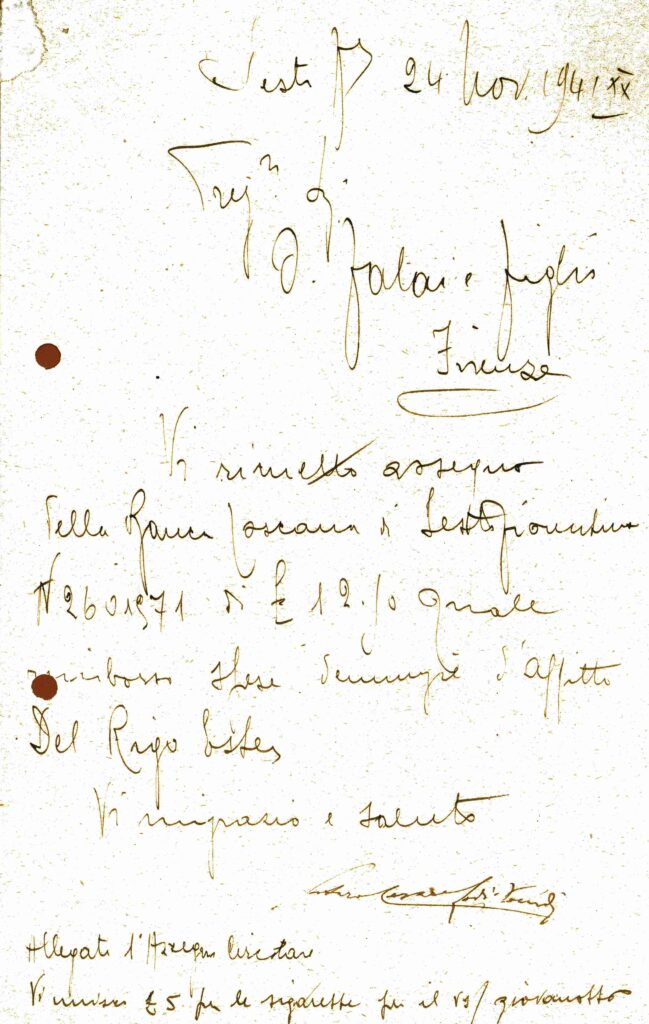 Sesto F 24 Nov. 1941 XX
Preg. Sig.
D. Falai e figli
Firenze
Vi rimetto assegno
della Banca Toscana di Sesto Fiorentino
N 2601971 di £ 12.50 quale
rimborso spese denunzie d'affitto
Del Rigo Ester
Vi ringrazio e saluto
Allegato l'Assegno Circolare
Vi unisco £ 5 per le sigarette per il Vs/ giovanotto